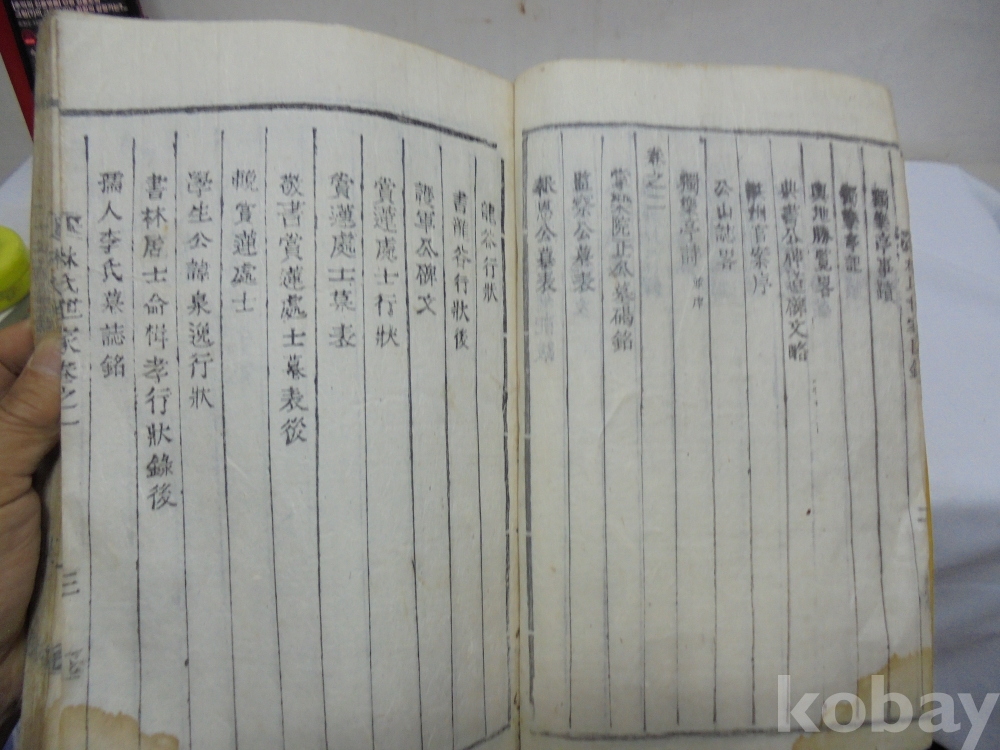 獨樂亭事蹟
獨樂亭記
輿地勝覽略
典書公碑道碣文略
州官案序
公山誌略
獨樂亭詩 并序
卷之二
掌樂院正公墓碣銘
監察公墓表
公墓表
谷行狀
書 谷行狀後
護軍公碑文
賞蓮處士行狀
賞蓮處士墓表
敬書賞蓮處士墓表後
輓賞蓮處士
學生公諱泉逸行狀
書林居士命 孝行狀錄後
孺人李氏墓誌銘
林氏世家卷之二
三
kobay